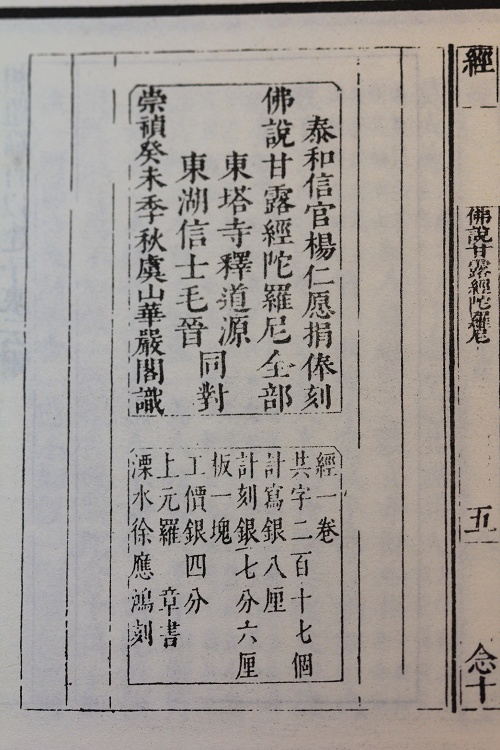 經
佛說甘露經陀羅尼
五
念十
泰和信官楊仁愿捐俸刻
佛說甘露經陀羅尼全部
東塔寺釋道源
東湖信士毛晉
同對
崇禎癸未季秋虞山華嚴閣識
經一卷
共字二百十七個
計寫銀八厘
計刻銀七分六厘
板一塊
工價銀四分
上元羅 章書
溧水徐應鴻刻